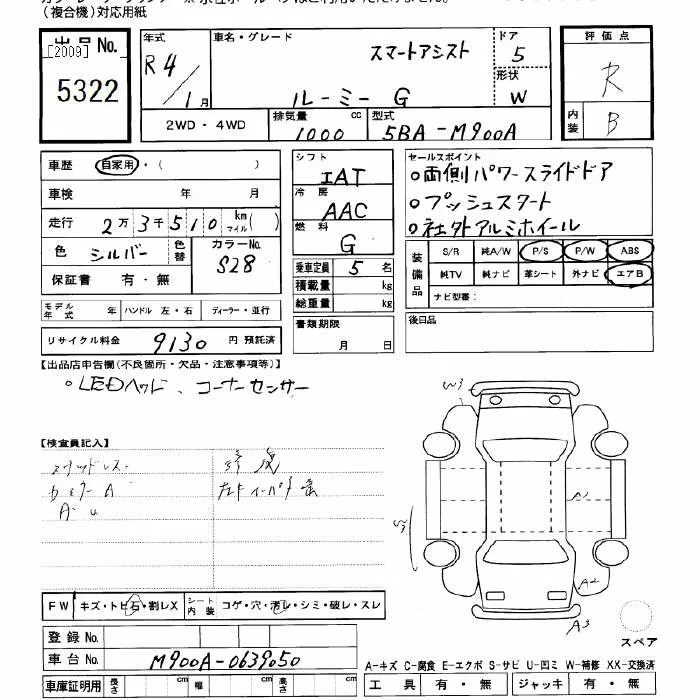 (複合機)対応用紙
出品 No.
[2009]
5322
年式
R4/1月
車名・グレード
スマートアシスト
ルーミー G
ドア
5
形状
W
評価点
R
内装
B
2WD・4WD
排気量
1000 cc
型式
5BA-M900A
車歴 自家用・( )
車検 年 月
走行 2万3千510 km マイル( )
色 シルバー 色替 カラーNo. S28
保証書 有・無
シフト
IAT
冷房
AAC
燃料
G
乗車定員 5 名
積載量 kg
総重量 kg
セールスポイント
○両側パワースライドドア
○プッシュスタート
○社外アルミホイール
装備品
S/R 純A/W P/S P/W ABS
純TV 純ナビ 革シート 外ナビ エアB
ナビ型番:
モデル年式 年 ハンドル 左・右 ディーラー・並行
リサイクル料金 9130 円 預託済
書類期限
月 日
後日品
【出品店申告欄(不良箇所・欠品・注意事項等)】
○LEDヘッド、コーナーセンサー
【検査員記入】
A・U
W3
A2
A3
FW キズ・トビ石・割レX
シート内装 コゲ・穴・汚レ・シミ・破レ・スレ
登録 No.
車台 No. M900A-0639050
車庫証明用 長さ cm 幅 cm 高さ cm
スペア
A-キズ C-腐食 E-エクボ S-サビ U-凹ミ W-補修 XX-交換済
工具 有・無 ジャッキ 有・無